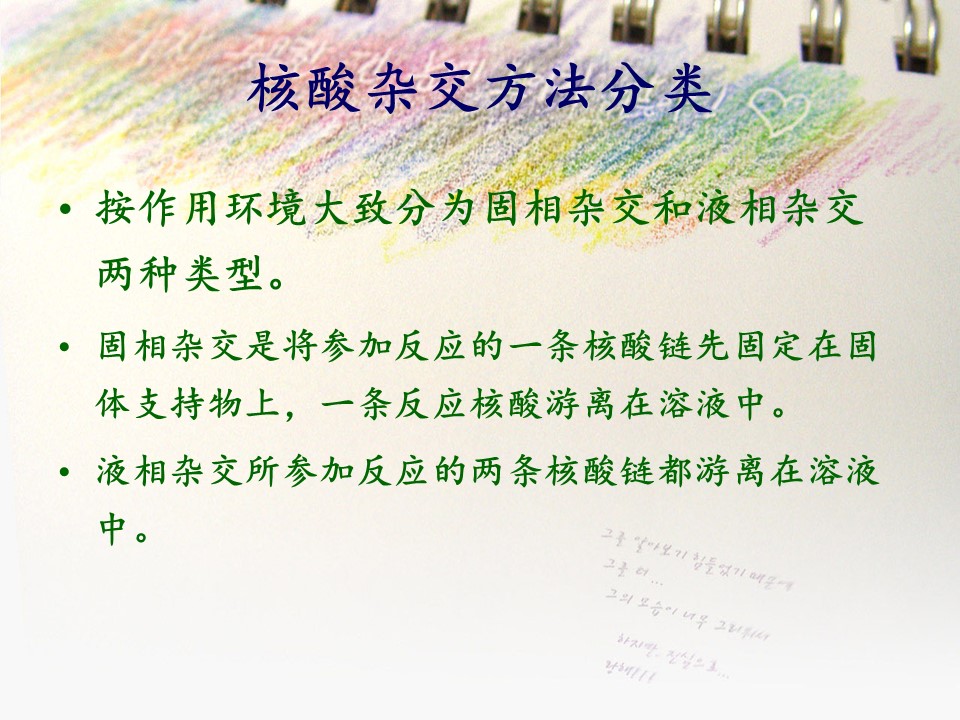 核酸杂交方法分类
• 按作用环境大致分为固相杂交和液相杂交
两种类型。
• 固相杂交是将参加反应的一条核酸链先固定在固
体支持物上，一条反应核酸游离在溶液中。
• 液相杂交所参加反应的两条核酸链都游离在溶液
中。
그를 알아보기 힘들었기 때문에
그를 더...
그의 모습이 너무 그리워서
하지만- 진심으로...